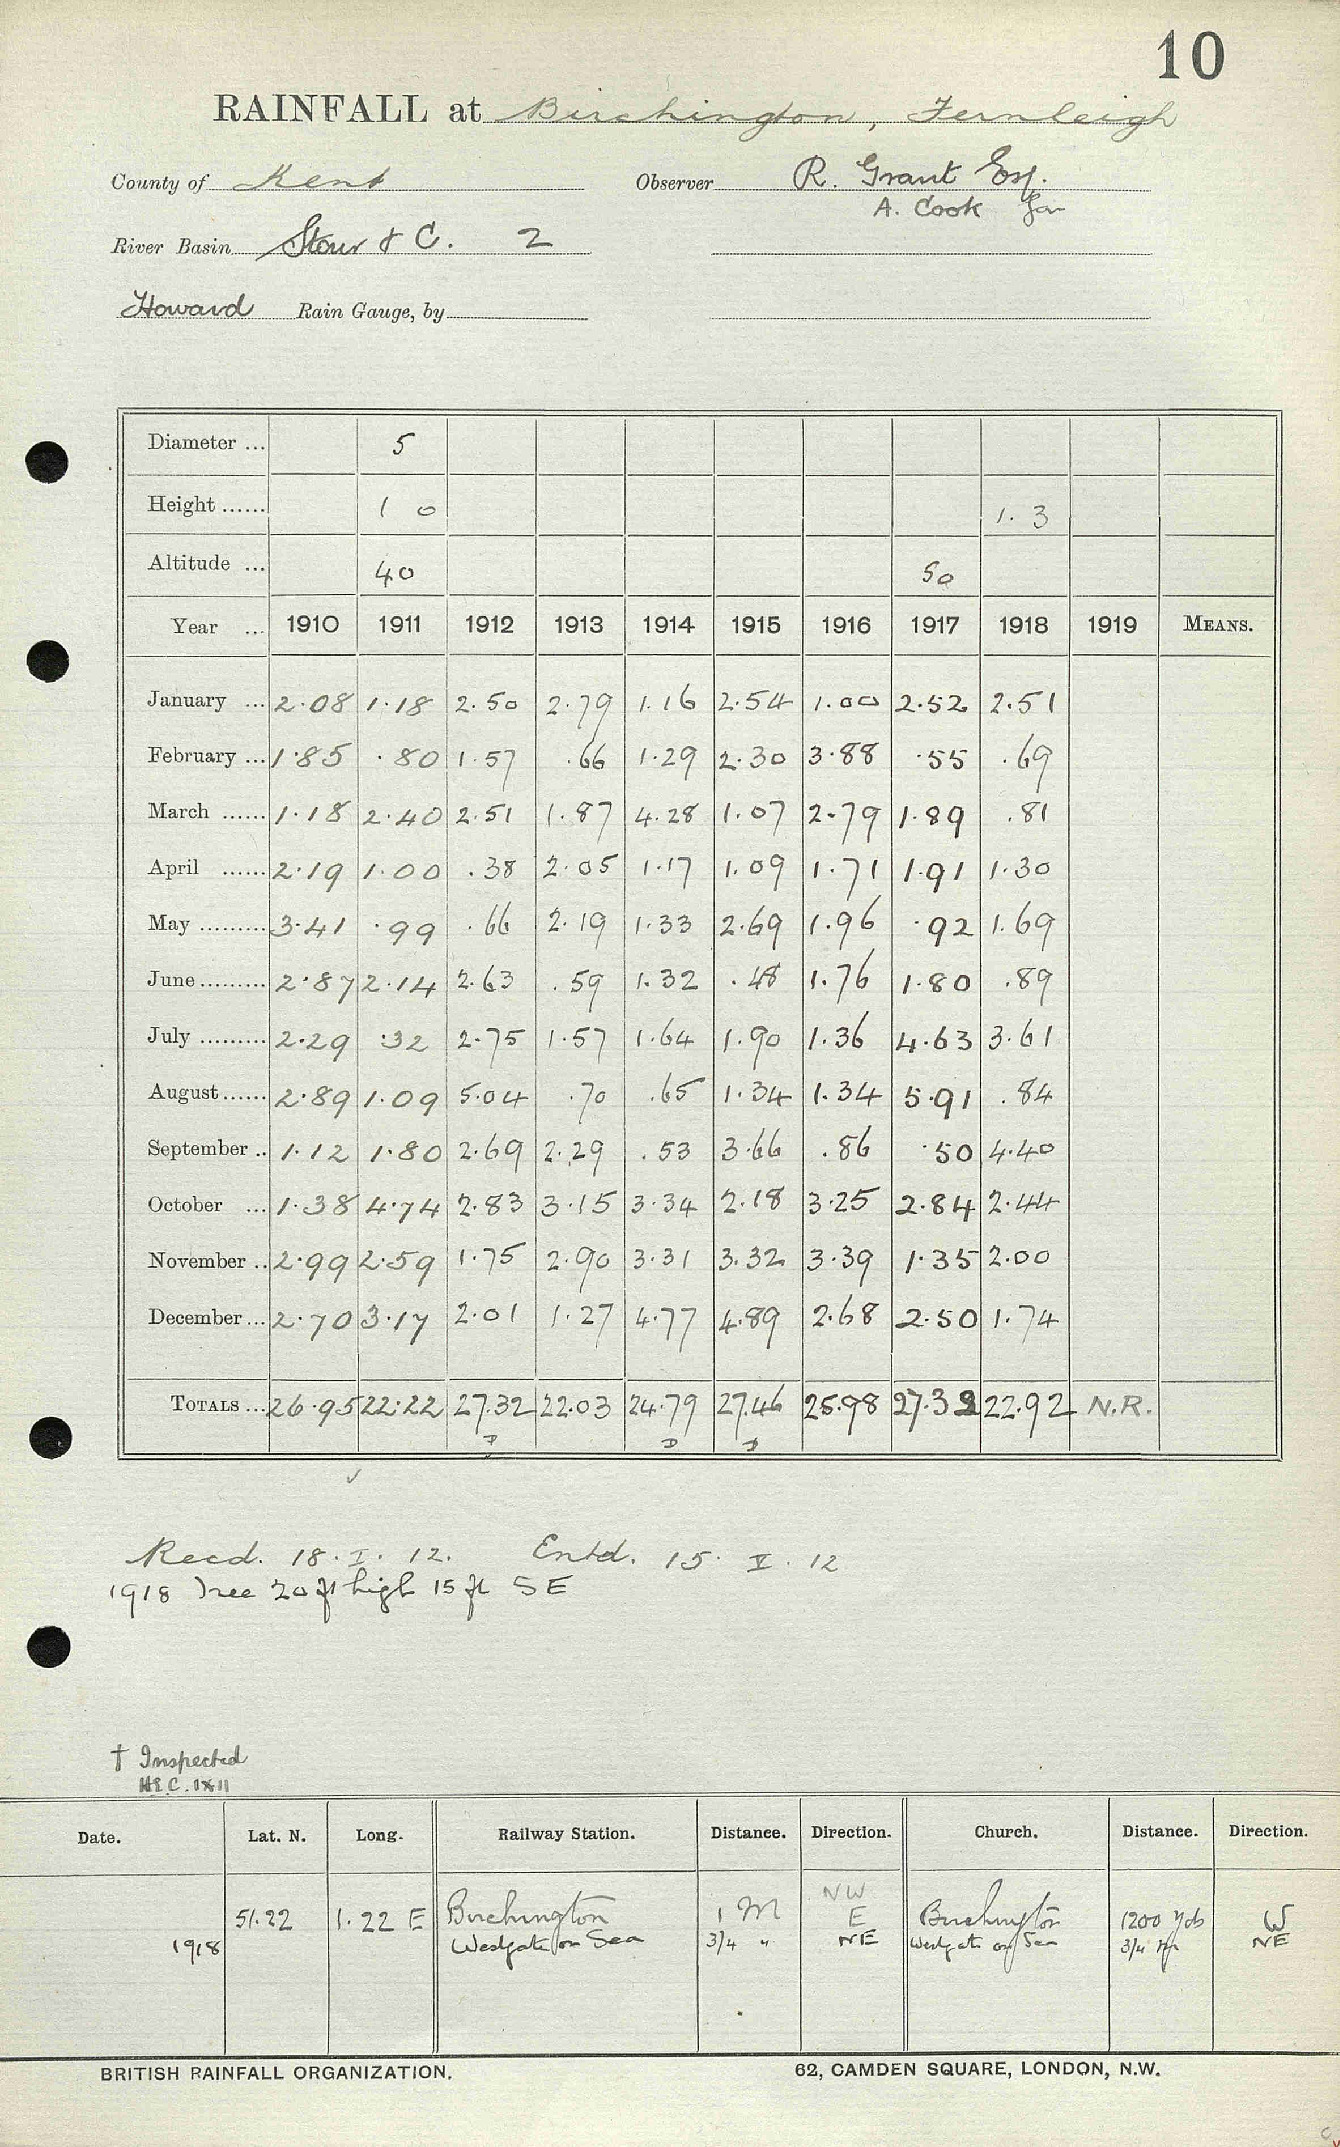 10
RAINFALL at Birchington, Fernleigh
County of Kent Observer R. Grant Esq.
A. Cook
River Basin Stour & C. 2
Howard Rain Gauge, by
Diameter ... 5
Height ...... 1 0 1. 3
Altitude ... 40 50
Year ... 1910 1911 1912 1913 1914 1915 1916 1917 1918 1919 MEANS.
January ... 2.08 1.18 2.50 2.79 1.16 2.54 1.00 2.52 2.51
February ... 1.85 .80 1.57 .66 1.29 2.30 3.88 .55 .69
March ...... 1.18 2.40 2.51 1.87 4.28 1.07 2.79 1.89 .81
April ...... 2.19 1.00 .38 2.05 1.17 1.09 1.71 1.91 1.30
May ......... 3.41 .99 .66 2.19 1.33 2.69 1.96 .92 1.69
June ......... 2.87 2.14 2.63 .59 1.32 .48 1.76 1.80 .89
July ......... 2.29 .32 2.75 1.57 1.64 1.90 1.36 4.63 3.61
August ...... 2.89 1.09 5.04 .70 .65 1.34 1.34 5.91 .84
September .. 1.12 1.80 2.69 2.29 .53 3.66 .86 .50 4.40
October ... 1.38 4.74 2.83 3.15 3.34 2.18 3.25 2.84 2.44
November .. 2.99 2.59 1.75 2.90 3.31 3.32 3.39 1.35 2.00
December ... 2.70 3.17 2.01 1.27 4.77 4.89 2.68 2.50 1.74
TOTALS ... 26.95 22.22 27.32 22.03 24.79 27.46 25.98 27.32 22.92 N.R.
Recd. 18. I. 12. Entd. 15. V. 12
1918 Tree 20 ft high 15 ft SE
† Inspected
H.E.C. 1X11
Date. Lat. N. Long. Railway Station. Distance. Direction. Church. Distance. Direction.
NW
51.22 1.22 E Birchington 1 M E Birchington 1200 yds W
1918 Westgate on Sea 3/4 " NE Westgate on Sea 3/4 NE
BRITISH RAINFALL ORGANIZATION. 62, CAMDEN SQUARE, LONDON, N.W.